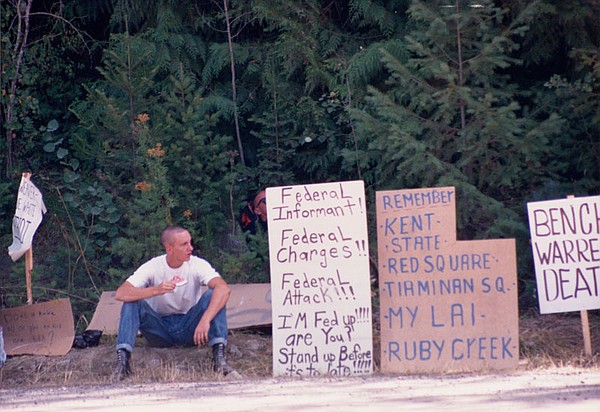 Federal
Informant!
Federal
Charges!!
Federal
Attack!!!
I'M Fed up!!!!
are You?
Stand up Before
it's to late!!!!!
REMEMBER
·KENT
·STATE
·RED SQUARE·
·TIAMINAN SQ.·
·MY LAI·
·RUBY CREEK·
BENCH
WARRE
DEAT